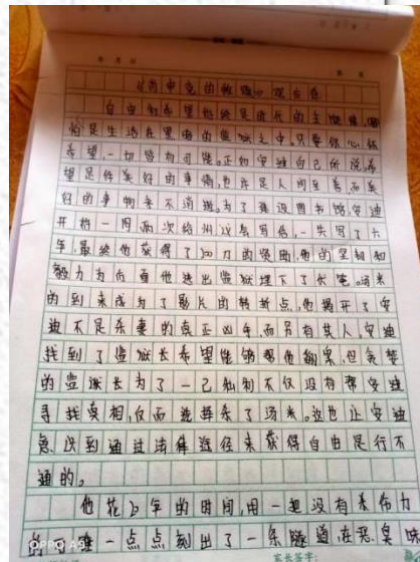 《肖申克的救赎》观后感
自由和希望始终是影片的主旋律,哪
怕是生活在黑暗的监狱之中,只要你心怀
希望,一切皆有可能。正如安迪自己所说希
望是件美好的事情,也许是人间至善而美
好的事物永不消逝。为了建设图书馆,安迪
开始一周两次给州议会写信,一共写了六
年,最终他获得了
毅力为后面他逃出监狱埋下了伏笔。汤米
的到来成为了影片的转折点,他揭开了安
迪不是杀妻的真正凶手,而另有其人,安迪
找到了监狱长希望能够帮他翻案,但贪婪
的监狱长为了一己私利不仅没有帮安迪
寻找真相,反而选择杀了汤米。这也让安迪
意识到通过法律途径来获得自由是行不
通的。
他花 年的时间,用一把没有杀伤力
的 一点点刻出了一条隧道,在恶臭味
OPPO A5
家长签字: